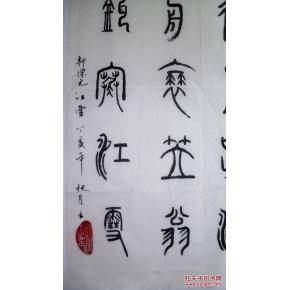 舟蓑笠翁
釣寒江雪
柳宗元 江雪 丁亥年 秋月书
孔夫子旧书网